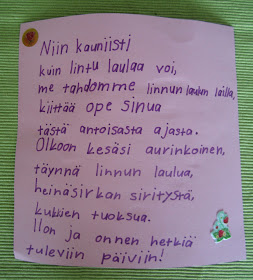 Niin kauniisti
kuin lintu laulaa voi,
me tahdomme linnun laulun lailla,
kiittää ope sinua
tästä antoisasta ajasta.
Olkoon kesäsi aurinkoinen,
täynnä linnun laulua,
heinäsirkan siritystä,
kukkien tuoksua.
Ilon ja onnen hetkiä
tuleviin päiviin!